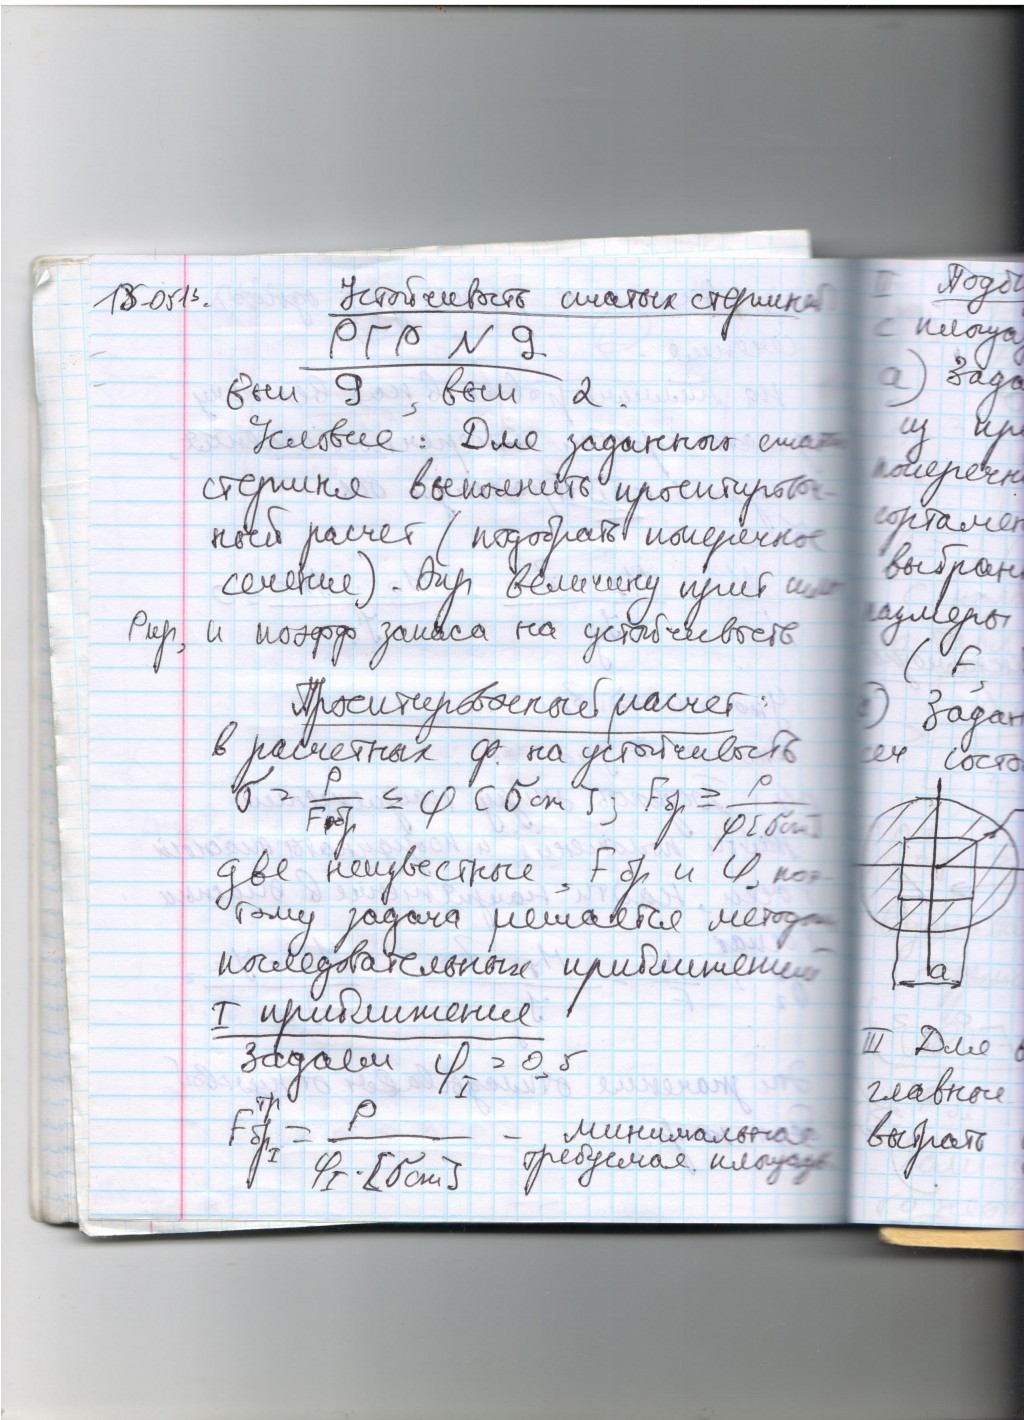 Устойчивость сжатых стержней
РГР N 9
9, 2.
Условие: Для заданного сжат
стержня выполнить проектировоч-
ный расчет (подобрать поперечное
сечение). величину крит силы
Pкр, и коэфф запаса на устойчивость
Проектировочный расчет:
в расчетных ф. на устойчивость
σ = P/Fбр ≤ φ [σсж]; Fбр ≥ P/φ[σсж]
две неизвестные, Fбр и φ, поэ-
тому задача решается методом
последовательных приближений
I приближение
Задаем φI = 0,5
FбрI тр = P/φI·[σсж] - минимальная
требуемая площадь
I Подб
с площад
а) Зада
из пр
поперечн
сортамен
выбран
размеры
(F,
Задан
сеч состо
a
III Для
главные
выбрать